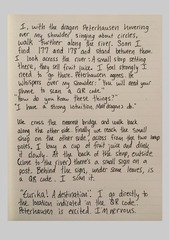 I, with the dragon Peterhausen hovering
over my shoulder singing about circles,
walk further along the river. Soon I
find 177 and 178 and stand between them.
I look across the river: a small shop selling
fruit juice. I feel strongly I
need to go there. Peterhausen agrees. He
whispers over my shoulder: "You will need your
phone to scan a QR code."
How do you know these things?"
"I have a strong intuitive intelligence do."
We cross the nearest bridge and walk back
along the other side. Finally we reach the small
shop on the other side, across from the two lamp
posts, I buy a cup of fruit juice and drink
it slowly. At the back of this shop, under
(close to the river) there's a small sign on a
post. Behind the sign, under some leaves, is
a QR code. I scan it.
"Eurika! A destination". I go directly to
the location indicated in the QR code.
Peterhausen is excited. I'm nervous.